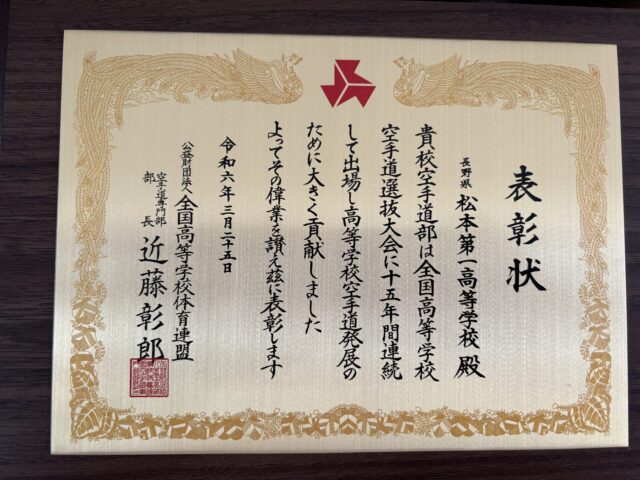 表彰状
長野県 松本第一高等学校 殿
貴校空手道部は全国高等学校
空手道選抜大会に十五年間連続
して出場し高等学校空手道発展の
ために大きく貢献しました
よってその偉業を讃え茲に表彰します
令和六年三月二十五日
公益財団法人 全国高等学校体育連盟
空手道専門部
部長 近藤彰郎